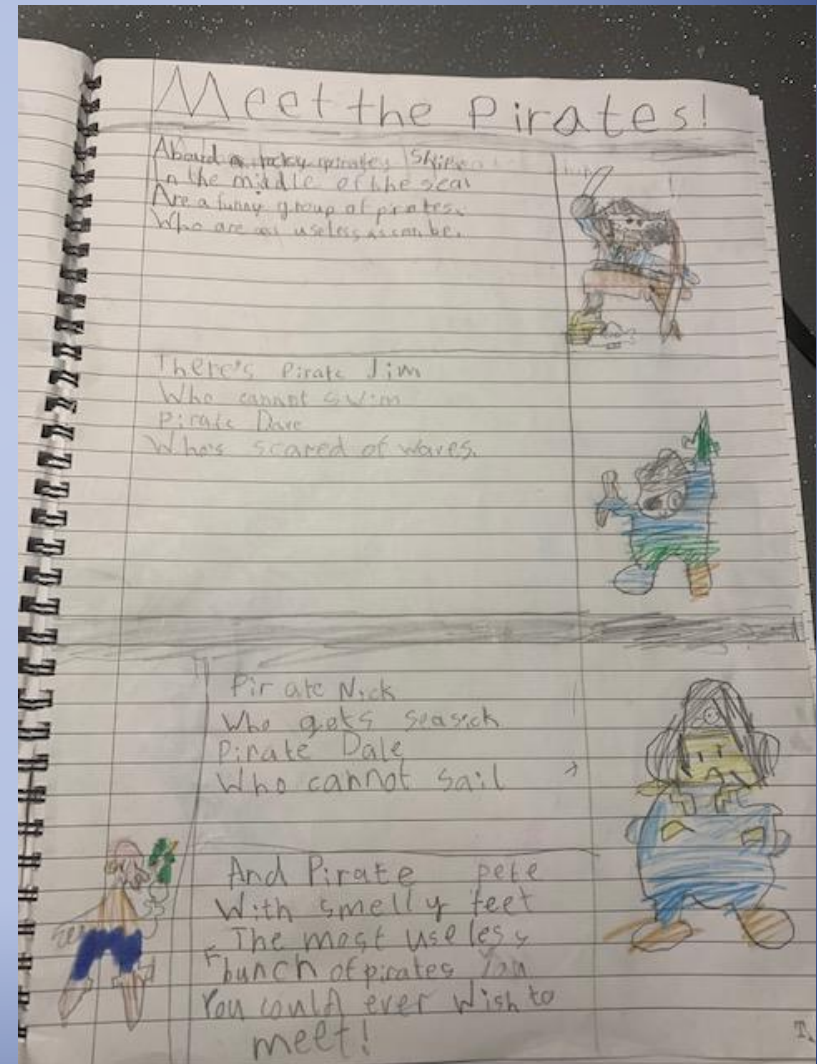 Meet the Pirates!
Aboard a pirates Ship
In the middle of the sea
Are a funny group of pirates.
Who are as useless as can be.
There's Pirate Jim
Who cannot swim
Pirate Dave
Who's scared of waves.
Pirate Nick
Who gets seasick
Pirate Dale
Who cannot sail
And Pirate pete
With smelly feet
The most useless
bunch of pirates You
You could ever wish to
meet!